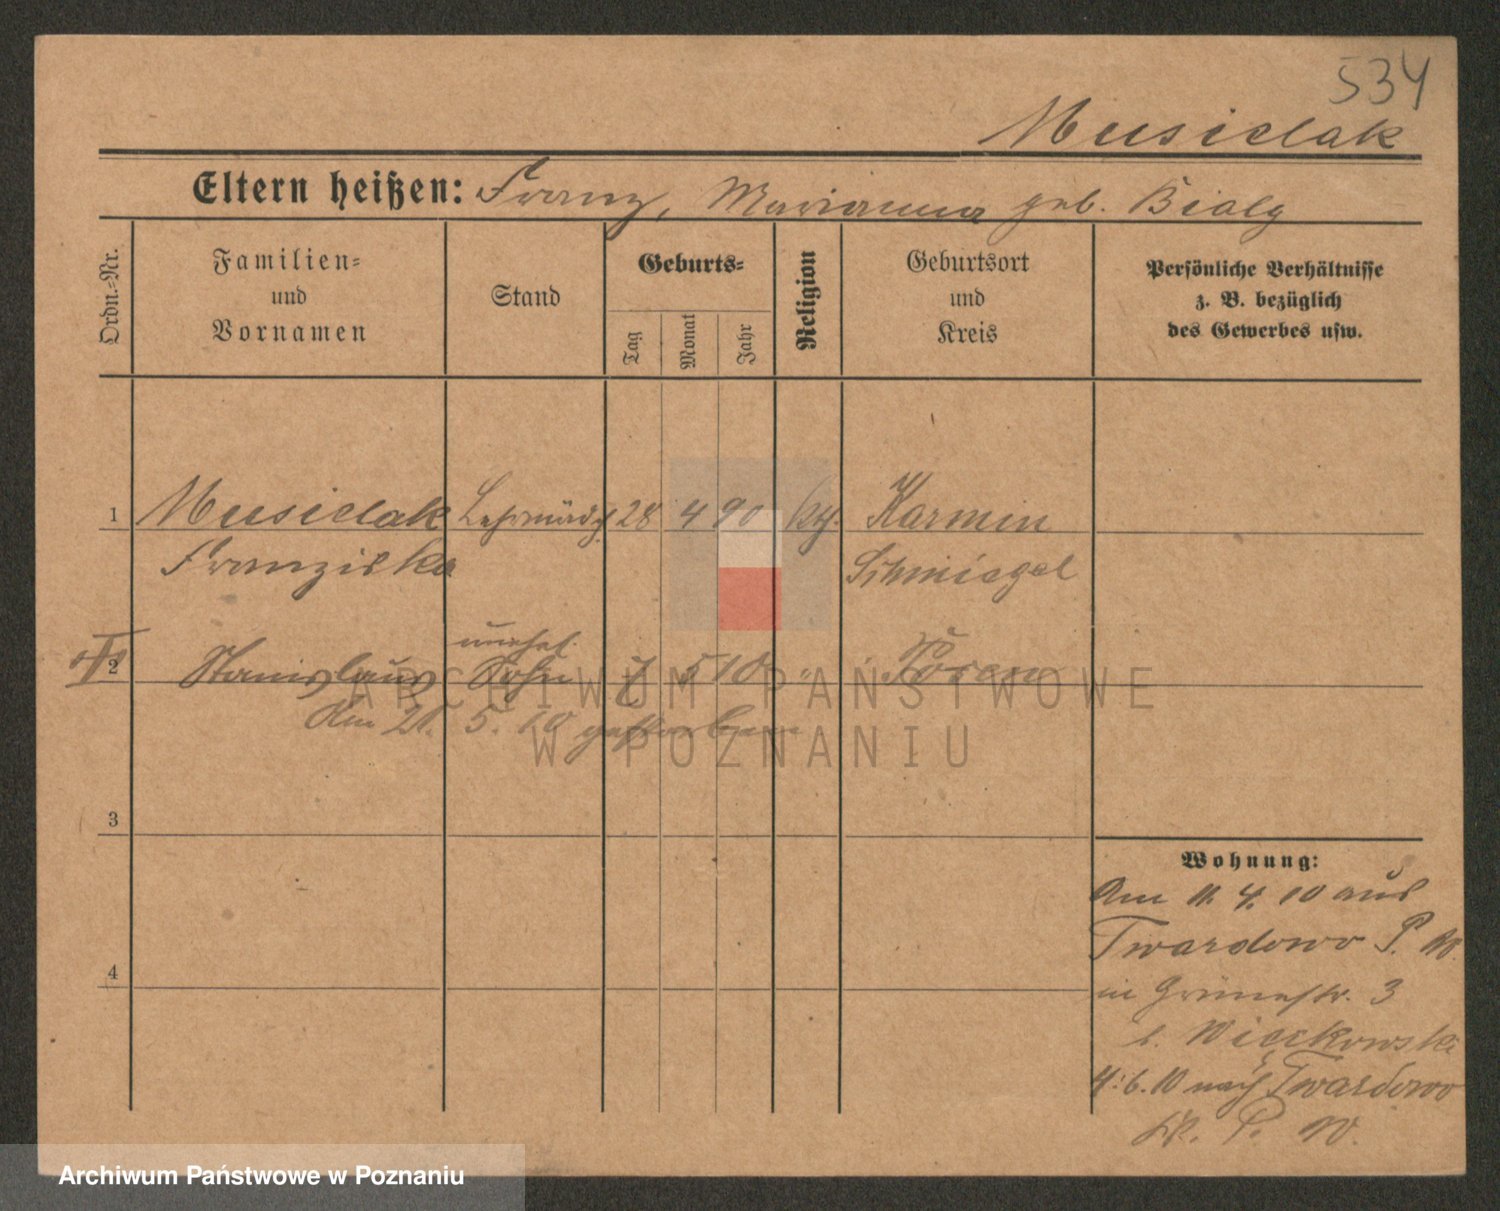 534
Musielak
Eltern heißen: Franz, Marianna geb. Bialy
Ordn.-Nr.
Familien- und Vornamen
Stand
Geburts-
Tag
Monat
Jahr
Religion
Geburtsort und Kreis
Persönliche Verhältnisse
z. B. bezüglich
des Gewerbes usw.
1 Musielak 28 4 90 Karmin
Franziska Schmiegel
unehel.
2 Stanislaus Sohn 7 5 10 " Posen
Am 21. 5. 10 gestorben
ARCHIWUM PAŃSTWOWE
W POZNANIU
3
4
Wohnung:
Am 11. 4. 10 aus
Twardowo P. W.
in Grünestr. 3
b. Więckowski
4. 6. 10 nach Twardowo
P. W.
Archiwum Państwowe w Poznaniu